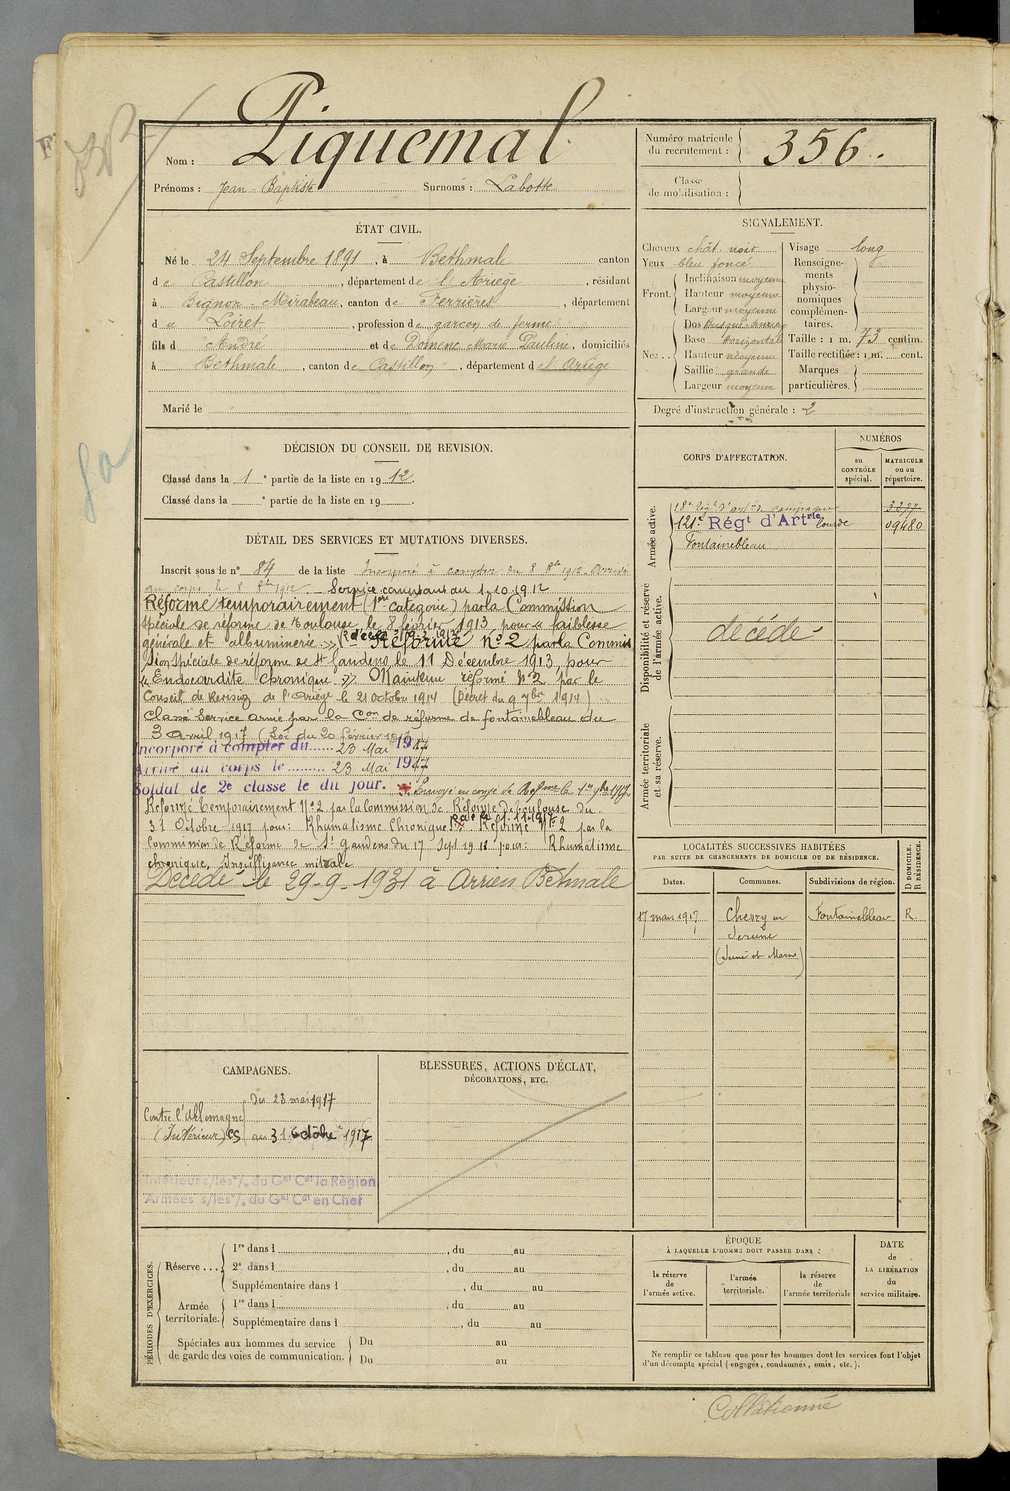 Nom : Piquemal
Prénoms : Jean-Baptiste Surnoms : Labotte
Numéro matricule du recrutement : 356.
Classe de mobilisation :
ÉTAT CIVIL.
Né le 24 Septembre 1891, à Bethmale canton
de Castillon, département de l'Ariège, résidant
à Bignon-Mirabeau, canton de Ferrières, département
du Loiret, profession de garçon de ferme
fils d'André et de Domenc Marie Pauline, domiciliés
à Bethmale, canton de Castillon, département de l'Ariège
Marié le
SIGNALEMENT.
Cheveux chât. noir
Yeux bleu foncé
Front. Inclinaison moyenne
Hauteur moyenne
Largeur moyenne
Nez .. Dos Busqué
Base horizontale
Hauteur moyenne
Saillie grande
Largeur moyenne
Visage long
Renseignements physionomiques complémentaires.
Taille : 1 m. 73 centim.
Taille rectifiée : 1 m. cent.
Marques particulières.
Degré d'instruction générale : 2
DÉCISION DU CONSEIL DE REVISION.
Classé dans la 1e partie de la liste en 1912.
Classé dans la e partie de la liste en 19
CORPS D'AFFECTATION.
NUMÉROS
au CONTRÔLE spécial.
MATRICULE ou au répertoire.
Armée active.
18e Régt d'artie de campagne 3277
121e Régt d'Artrie lourde 09480
Fontainebleau
Disponibilité et réserve de l'armée active.
décédé
Armée territoriale et sa réserve.
DÉTAIL DES SERVICES ET MUTATIONS DIVERSES.
Inscrit sous le n° 84 de la liste Incorporé à compter du 8 8bre 1912. Arrivé
au corps le 8 8bre 1912. Service comptant du 1.10.1912
Réformé temporairement (1ère catégorie) par la Commission
spéciale de réforme de Toulouse, le 8 février 1913 pour « faiblesse
générale et albuminerie » Réformé n° 2 par la Commis
sion spéciale de réforme de St Gaudens, le 11 Décembre 1913, pour
« Endocardite chronique. » Maintenu réformé N° 2 par le
Conseil de Révision de l'Ariège le 21 octobre 1914 (Décret du 9 7bre 1914)
Classé Service armé par la Con de réforme de fontainebleau du
3 Avril 1917 (Loi du 20 février 1917
Incorporé à compter du...... 23 Mai 1917
Arrivé au corps le......... 23 Mai 1917
Soldat de 2e classe le dit jour. Envoyé en congé de Réforme le 1er 9bre 1917
Réformé temporairement N° 2 par la Commission de Réforme de Toulouse du
31 Octobre 1917 pour: Rhumatisme Chronique. Réformé N° 2 par la
Commission de Réforme de St Gaudens du 17 Sept 1918 pour: Rhumatisme
chronique, Insuffisance mitrale
Décédé le 29-9-1931 à Arrien Betmale
LOCALITÉS SUCCESSIVES HABITÉES
PAR SUITE DE CHANGEMENTS DE DOMICILE OU DE RÉSIDENCE.
Dates. Communes. Subdivisions de région. D DOMICILE. R RÉSIDENCE.
17 mars 1917 Chevry en Fontainebleau R.
Sereine
(Seine et Marne)
CAMPAGNES.
Contre l'Allemagne
(Intérieur) CS
du 23 mai 1917
au 31 Octobre 1917
Intérieur s/les °/. du Gal Ct la Région
Armées s/les °/. du Gal Ct en Chef
BLESSURES, ACTIONS D'ÉCLAT,
DÉCORATIONS, ETC.
PÉRIODES D'EXERCICES.
Réserve . . .
1re dans l , du au
2e dans l , du au
Supplémentaire dans l , du au
Armée territoriale.
1re dans l , du au
Supplémentaire dans l , du au
Spéciales aux hommes du service de garde des voies de communication.
Du au
Du au
ÉPOQUE
À LAQUELLE L'HOMME DOIT PASSER DANS :
la réserve de l'armée active.
l'armée territoriale.
la réserve de l'armée territoriale
DATE de LA LIBÉRATION du service militaire.
Ne remplir ce tableau que pour les hommes dont les services font l'objet
d'un décompte spécial (engagés, condamnés, omis, etc.).
Collationné